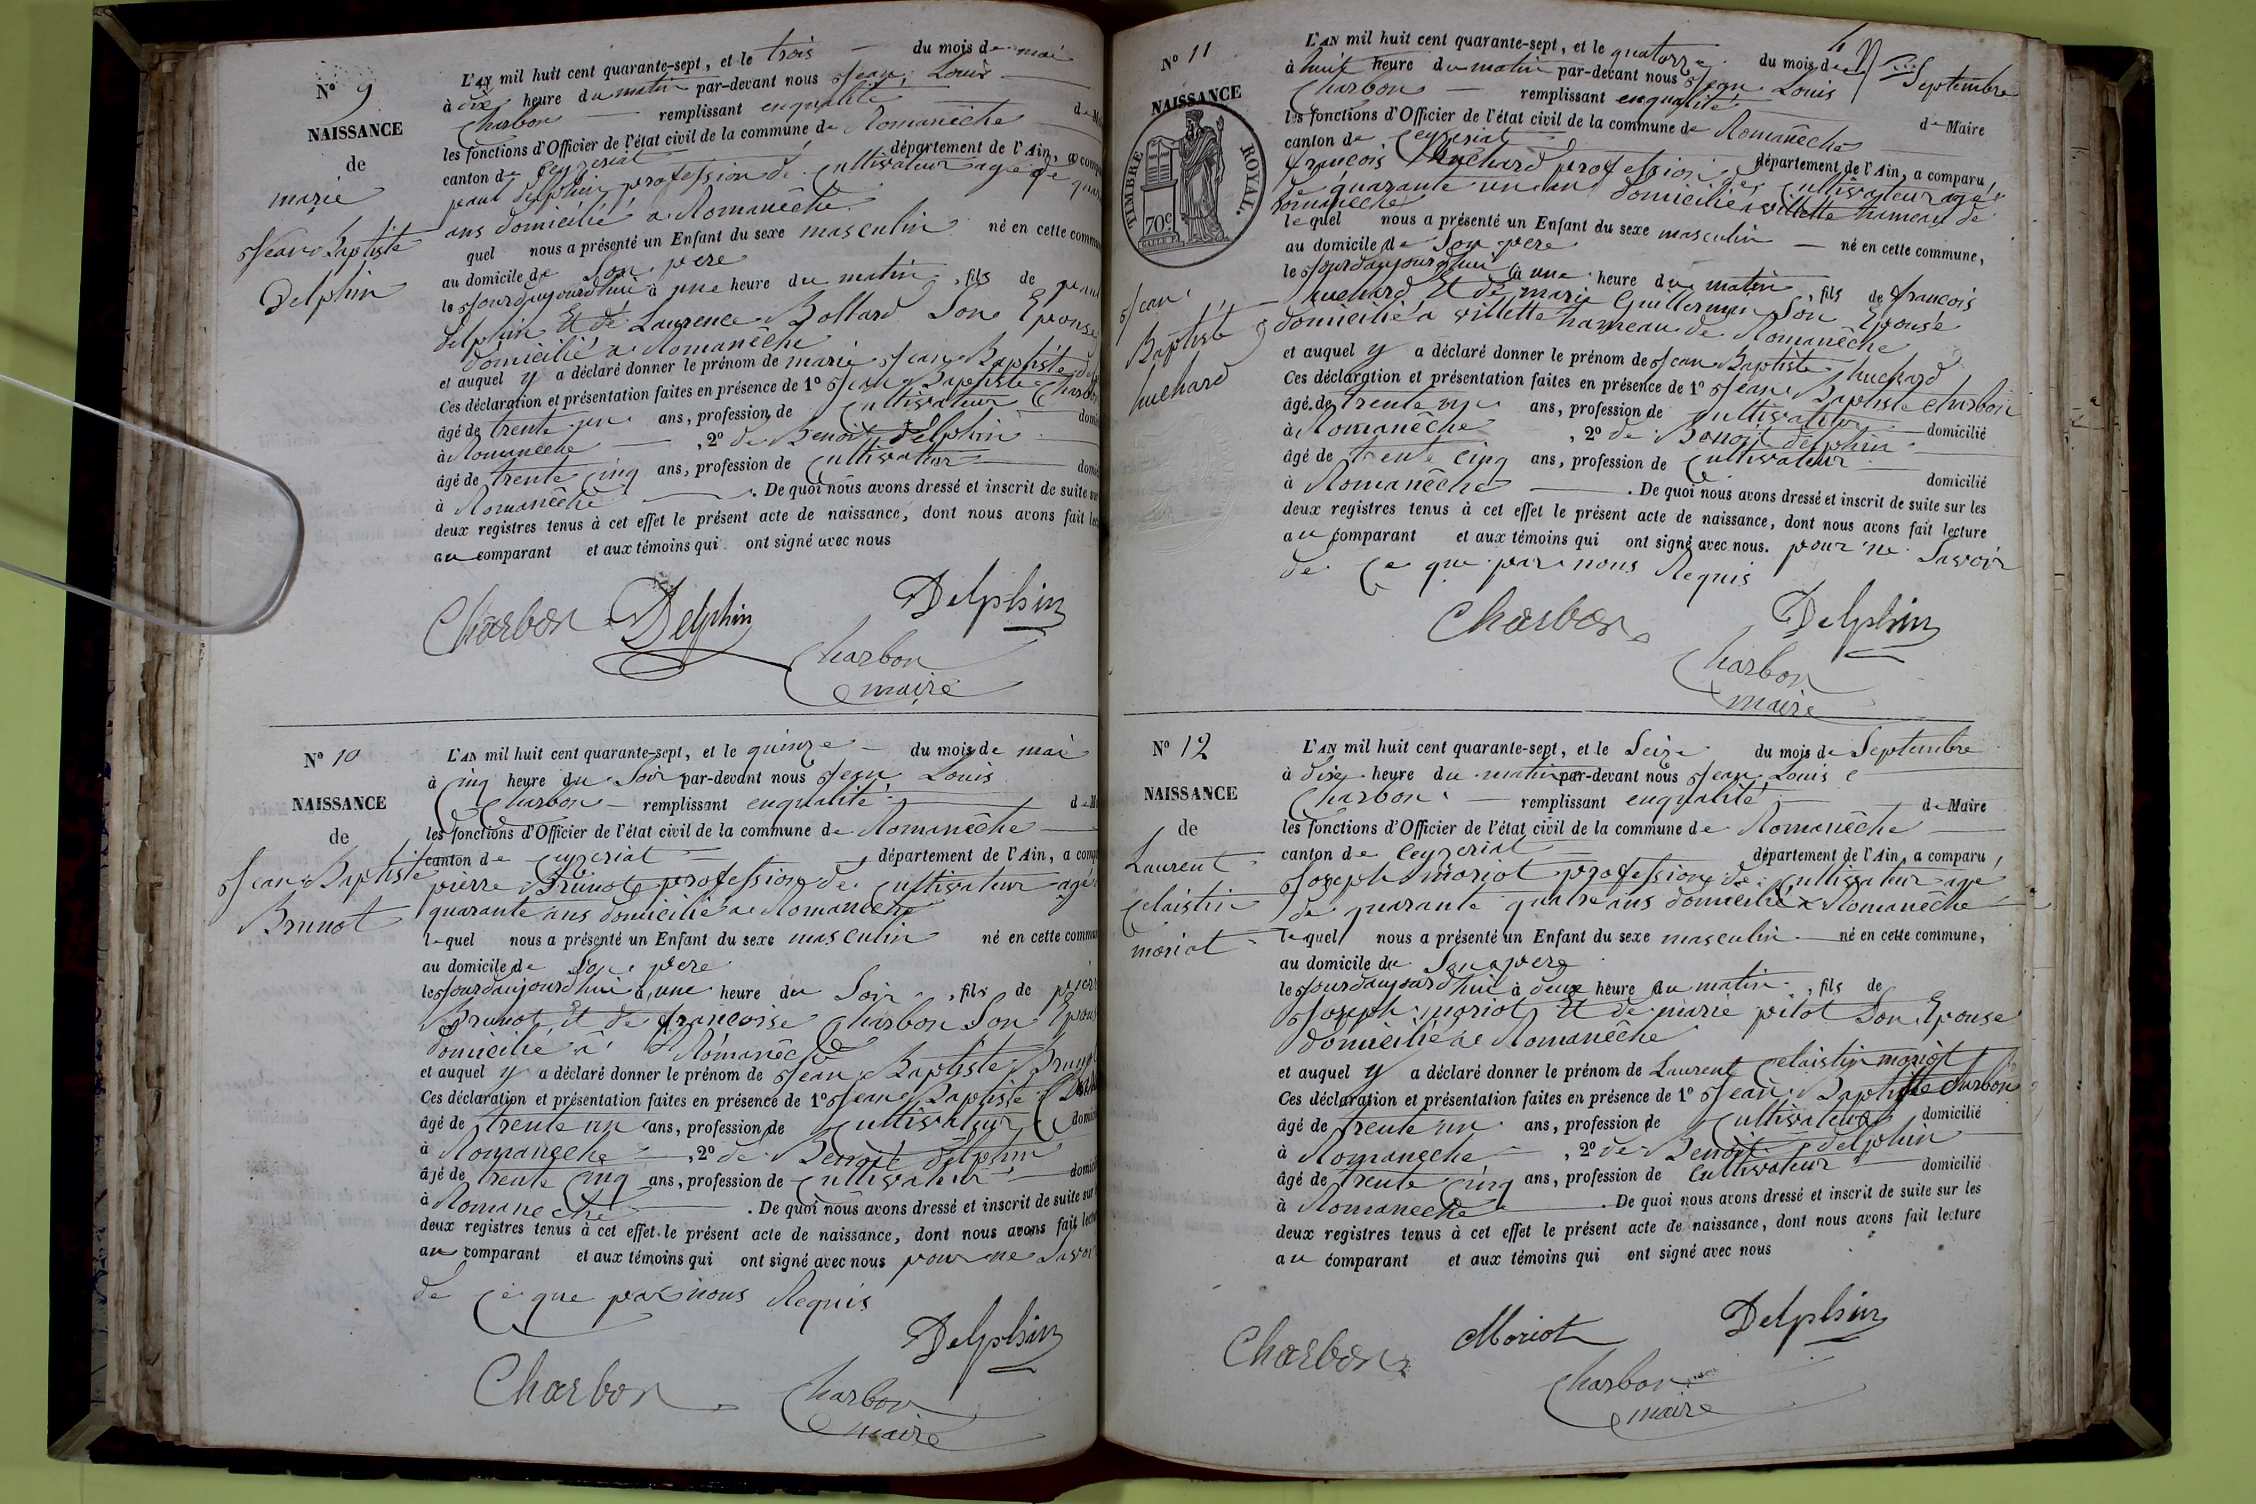 N° 9
NAISSANCE
de
marie
Jean Baptiste
Delphin
L'AN mil huit cent quarante-sept, et le trois du mois de mai
à dix heure du matin par-devant nous Jean Louis
Charbon remplissant enqualité de
les fonctions d'Officier de l'état civil de la commune de Romanêche
canton de Ceyzeriat département de l'Ain, a
paul delphin profession de cultivateur agé de
ans domicilié a Romanêche
quel nous a présenté un Enfant du sexe masculin né en cette
au domicile de Son pere
le Jourdaujourdhui à une heure du matin, fils de
delphin Et de Laurence Bollard Son Epouse
domicilié a Romanêche
et auquel y a déclaré donner le prénom de marie Jean Baptiste
Ces déclaration et présentation faites en présence de 1° Jean Baptiste Charbon
âgé de trente un ans, profession de cultivateur
à Romanêche, 2° de Benoit delphin
âgé de trente cinq ans, profession de cultivateur
à Romanêche. De quoi nous avons dressé et inscrit de suite
deux registres tenus à cet effet le présent acte de naissance, dont nous avons fait
au comparant et aux témoins qui ont signé avec nous
Charbon Delphin Delphin
Charbon
maire
N° 10
NAISSANCE
de
Jean Baptiste
Brunot
L'AN mil huit cent quarante-sept, et le quinze du mois de mai
à cinq heure du Soir par-devant nous Jean Louis
Charbon remplissant enqualité
les fonctions d'Officier de l'état civil de la commune de Romanêche
canton de Ceyzeriat département de l'Ain, a
pierre Brunot profession de cultivateur agé
quarante ans domicilié a Romanêche
lequel nous a présenté un Enfant du sexe masculin né en cette
au domicile de Son pere
le Jourdaujourdhui à une heure du Soir, fils de
Brunot Et de francoise Charbon Son
domicilié a Romanêche
et auquel y a déclaré donner le prénom de Jean Baptiste Brunot
Ces déclaration et présentation faites en présence de 1° Jean Baptiste
âgé de trente un ans, profession de cultivateur
à Romaneche, 2° de Benoit delphin
âgé de trente cinq ans, profession de cultivateur
à Romaneche. De quoi nous avons dressé et inscrit de suite sur
deux registres tenus à cet effet le présent acte de naissance, dont nous avons fait
au comparant et aux témoins qui ont signé avec nous pour ne Savoir
de ce que par nous Requis
Delphin
Charbon Charbon
maire
N° 11
NAISSANCE
TIMBRE ROYAL.
70c
Jean
Baptiste
huchard
L'AN mil huit cent quarante-sept, et le quatorze du mois de
Septembre
à huit heure du matin par-devant nous Jean Louis
Charbon remplissant enqualité de Maire
les fonctions d'Officier de l'état civil de la commune de Romanêche
canton de Ceyzeriat département de l'Ain, a comparu,
françois huchard profession de cultivateur agé
de quarante un an domicilié a villette hameau de
romanêche
lequel nous a présenté un Enfant du sexe masculin né en cette commune,
au domicile de Son pere
le Jourdaujourdhui à une heure du matin, fils de françois
huchard Et de marie Guillermin Son Epouse
domicilié a villette hameau de Romanêche
et auquel y a déclaré donner le prénom de Jean Baptiste huchard
Ces déclaration et présentation faites en présence de 1° Jean Baptiste Charbon
âgé de trente un ans, profession de cultivateur domicilié
à Romanêche, 2° de Benoit delphin
âgé de trente cinq ans, profession de Cultivateur domicilié
à Romanêche. De quoi nous avons dressé et inscrit de suite sur les
deux registres tenus à cet effet le présent acte de naissance, dont nous avons fait lecture
au comparant et aux témoins qui ont signé avec nous. pour ne Savoir
de ce que par nous Requis
Charbon Delphin
Charbon
maire
N° 12
NAISSANCE
de
Laurent
Celaistin
moriot
L'AN mil huit cent quarante-sept, et le Seize du mois de Septembre
à dix heure du matin par-devant nous Jean Louis
Charbon remplissant enqualité de Maire
les fonctions d'Officier de l'état civil de la commune de Romanêche
canton de Ceyzeriat département de l'Ain, a comparu,
Joseph moriot profession de Cultivateur agé
de quarante quatre ans domicilié a Romanêche
lequel nous a présenté un Enfant du sexe masculin né en cette commune,
au domicile de Son pere
le Jourdaujourdhui à deux heure du matin, fils de
Joseph moriot Et de marie pitot Son Epouse
domicilié a Romanêche
et auquel y a déclaré donner le prénom de Laurent Celaistin moriot
Ces déclaration et présentation faites en présence de 1° Jean Baptiste Charbon
âgé de trente un ans, profession de Cultivateur domicilié
à Romaneche, 2° de Benoit delphin
âgé de trente cinq ans, profession de Cultivateur domicilié
à Romaneche. De quoi nous avons dressé et inscrit de suite sur les
deux registres tenus à cet effet le présent acte de naissance, dont nous avons fait lecture
au comparant et aux témoins qui ont signé avec nous
Charbon Moriot Delphin
Charbon
maire